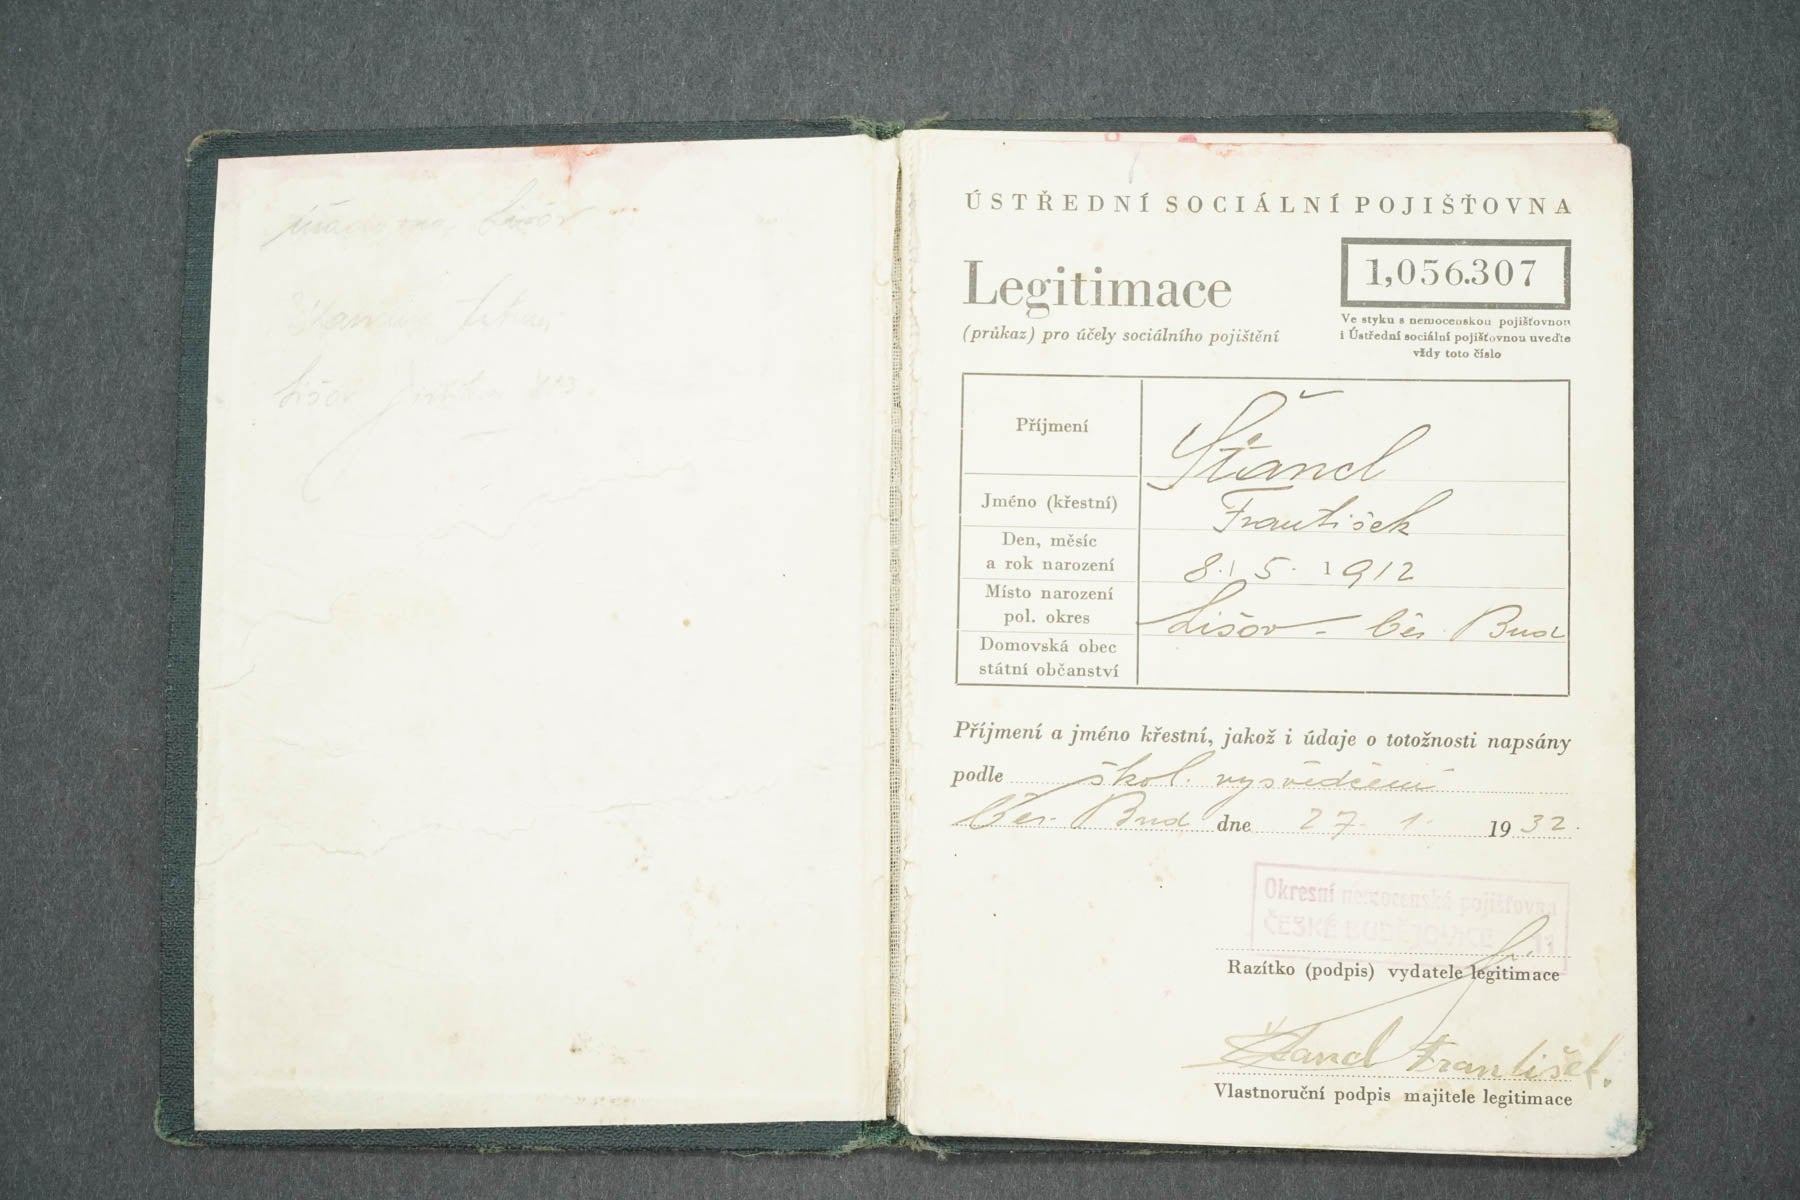 Lišov
Lišov
ÚSTŘEDNÍ SOCIÁLNÍ POJIŠŤOVNA
Legitimace
(průkaz) pro účely sociálního pojištění
1,056.307
Ve styku s nemocenskou pojišťovnou
i Ústřední sociální pojišťovnou uveďte
vždy toto číslo
Příjmení
Štancl
Jméno (křestní)
František
Den, měsíc
a rok narození
8. 5. 1912
Místo narození
pol. okres
Lišov - Čes. Bud
Domovská obec
státní občanství
Příjmení a jméno křestní, jakož i údaje o totožnosti napsány
podle škol. vysvědčení
Čes. Bud dne 27. 1. 1932.
Okresní nemocenská pojišťovna
ČESKÉ BUDĚJOVICE 11
Razítko (podpis) vydatele legitimace
Štancl František.
Vlastnoruční podpis majitele legitimace